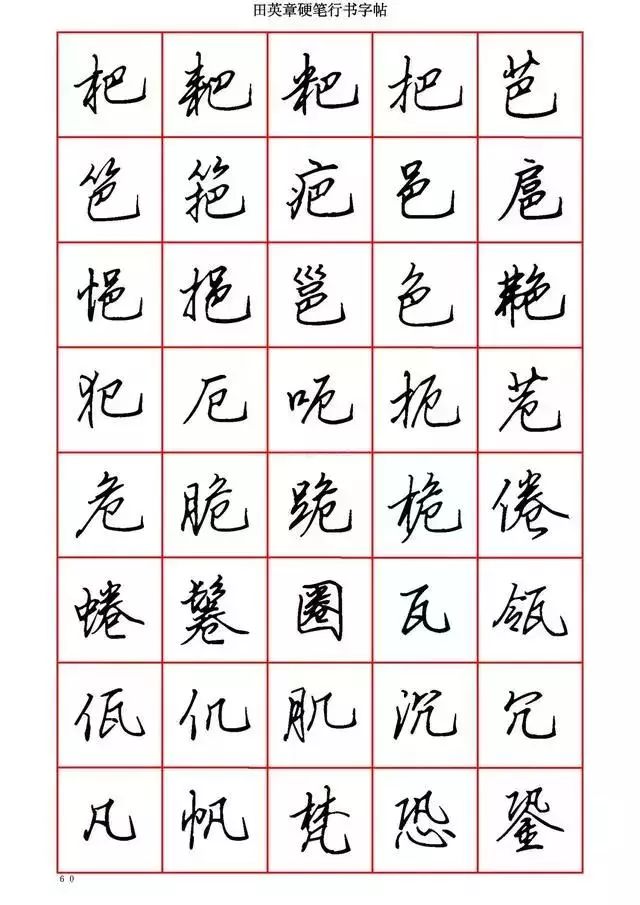 田英章硬笔行书字帖
杷 耙 粑 把 芭
笆 筢 疤 邑 扈
悒 挹 邕 色 艴
犯 厄 呃 扼 苊
危 脆 跪 桅 倦
蜷 鬈 圈 瓦 瓴
佤 仉 肌 沉 冗
凡 帆 梵 恐 銎
60